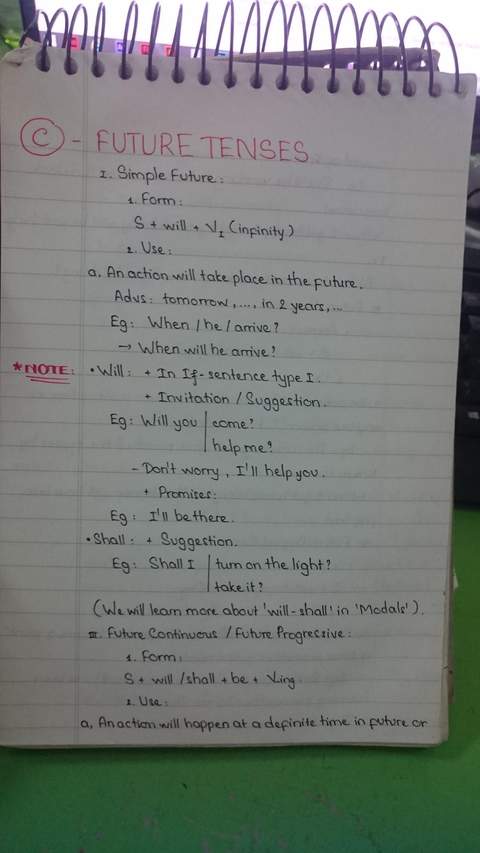 C - FUTURE TENSES
I. Simple Future:
1. Form:
S + will + VI (infinity)
2. Use:
a. An action will take place in the future.
Advs: tomorrow, ..., in 2 years, ...
Eg: When / he / arrive?
→ When will he arrive?
*NOTE: • Will: + In If-sentence type I.
+ Invitation / Suggestion.
Eg: Will you | come?
help me?
- Don't worry, I'll help you.
+ Promises:
Eg: I'll be there.
• Shall: + Suggestion.
Eg: Shall I | turn on the light?
take it?
(We will learn more about 'will-shall' in 'Modals').
II. Future Continuous / Future Progressive:
1. Form:
S + will / shall + be + Ving.
2. Use:
a. An action will happen at a definite time in future or